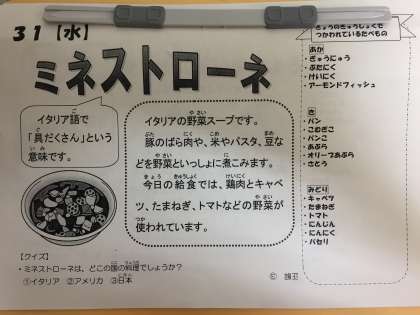 31【水】
ミネストローネ
イタリア語で
「具だくさん」という
意味です。
イタリアの野菜スープです。
豚のばら肉や、米やパスタ、豆な
どを野菜といっしょに煮こみます。
今日の給食では、鶏肉とキャベ
ツ、たまねぎ、トマトなどの野菜が
使われています。
【クイズ】
・ミネストローネは、どこの国の料理でしょうか？
①イタリア ②アメリカ ③日本
きょうのきゅうしょくで
つかわれているたべもの
あか
・ぎゅうにゅう
・ぶたにく
・けいにく
・アーモンドフィッシュ
き
・パン
・こむぎこ
・パンこ
・あぶら
・オリーブあぶら
・さとう
みどり
・キャベツ
・たまねぎ
・トマト
・にんじん
・にんにく
・パセリ